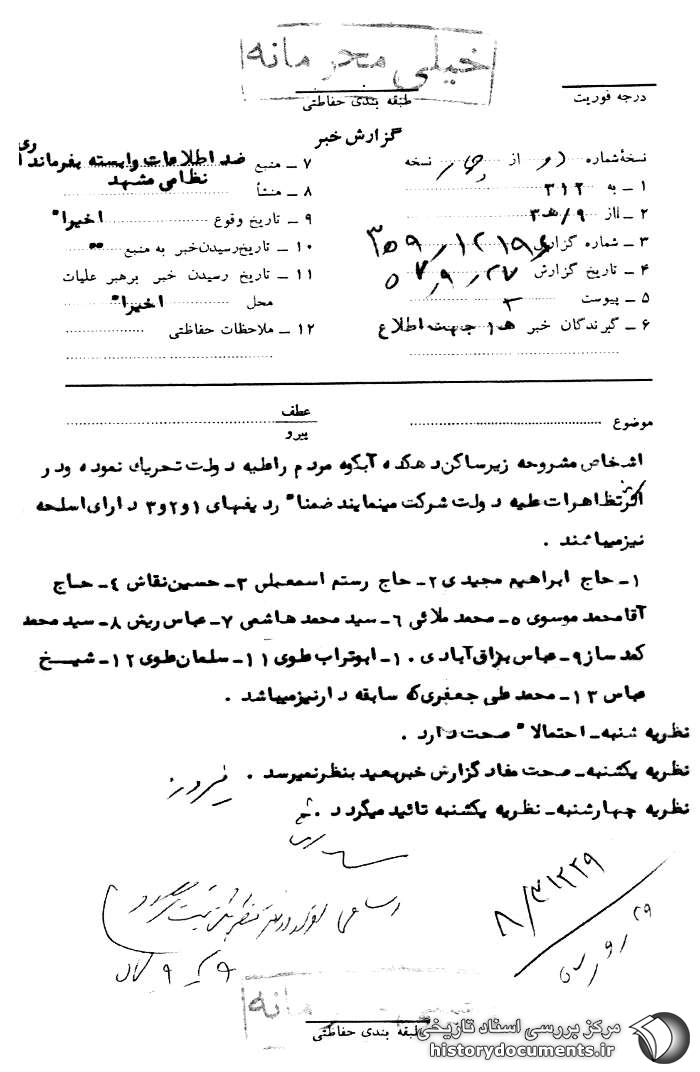 خیلی محرمانه
درجه فوریت
طبقه بندی حفاظتی
گزارش خبر
نسخهٔ شماره دو از چهار نسخه
۱ ـ به ۳۱۲
۲ ـ از ۹/هـ۳
۳ ـ شماره گزارش
۴ ـ تاریخ گزارش ۵۷٫۹٫۲۷
۵ ـ پیوست
۶ ـ گیرندگان خبر هـ۱ جهت اطلاع
۷ ـ منبع ضد اطلاعات وابسته بفرمانداری
نظامی مشهد
۸ ـ منشأ
۹ ـ تاریخ وقوع اخیرا"
۱۰ ـ تاریخ رسیدن خبر به منبع "
۱۱ ـ تاریخ رسیدن خبر برهبر عملیات
محل اخیرا"
۱۲ ـ ملاحظات حفاظتی
موضوع
عطف
پیرو
اشخاص مشروحه زیر ساکن دهکده آبکوه مردم را علیه دولت تحریك نموده و در
اکثر تظاهرات علیه دولت شرکت مینمایند ضمنا" ردیفهای ۱و۲و۳ دارای اسلحه
نیز میباشند .
۱ـ حاج ابراهیم مجیدی ۲ـ حاج رستم اسمعیلی ۳ـ حسین نقاش ۴ـ حاج
آقا محمد موسوی ۵ـ محمد ملائی ۶ـ سید محمد هاشمی ۷ـ عباس ریش ۸ـ سید محمد
کمد ساز ۹ـ عباس بزاق آبادی ۱۰ـ ابوتراب علوی ۱۱ـ سلمان علوی ۱۲ـ شیخ
عباس ۱۳ـ محمد علی جعفری که سابقه دار نیز میباشد .
نظریه شنبه ـ احتمالا" صحت دارد .
نظریه یکشنبه ـ صحت مفاد گزارش خبر بعید بنظر نمیرسد . فیروز
نظریه چهارشنبه ـ نظریه یکشنبه تائید میگردد .
۹ ک ۹
طبقه بندی حفاظتی
مرکز بررسی اسناد تاریخی
historydocuments.ir